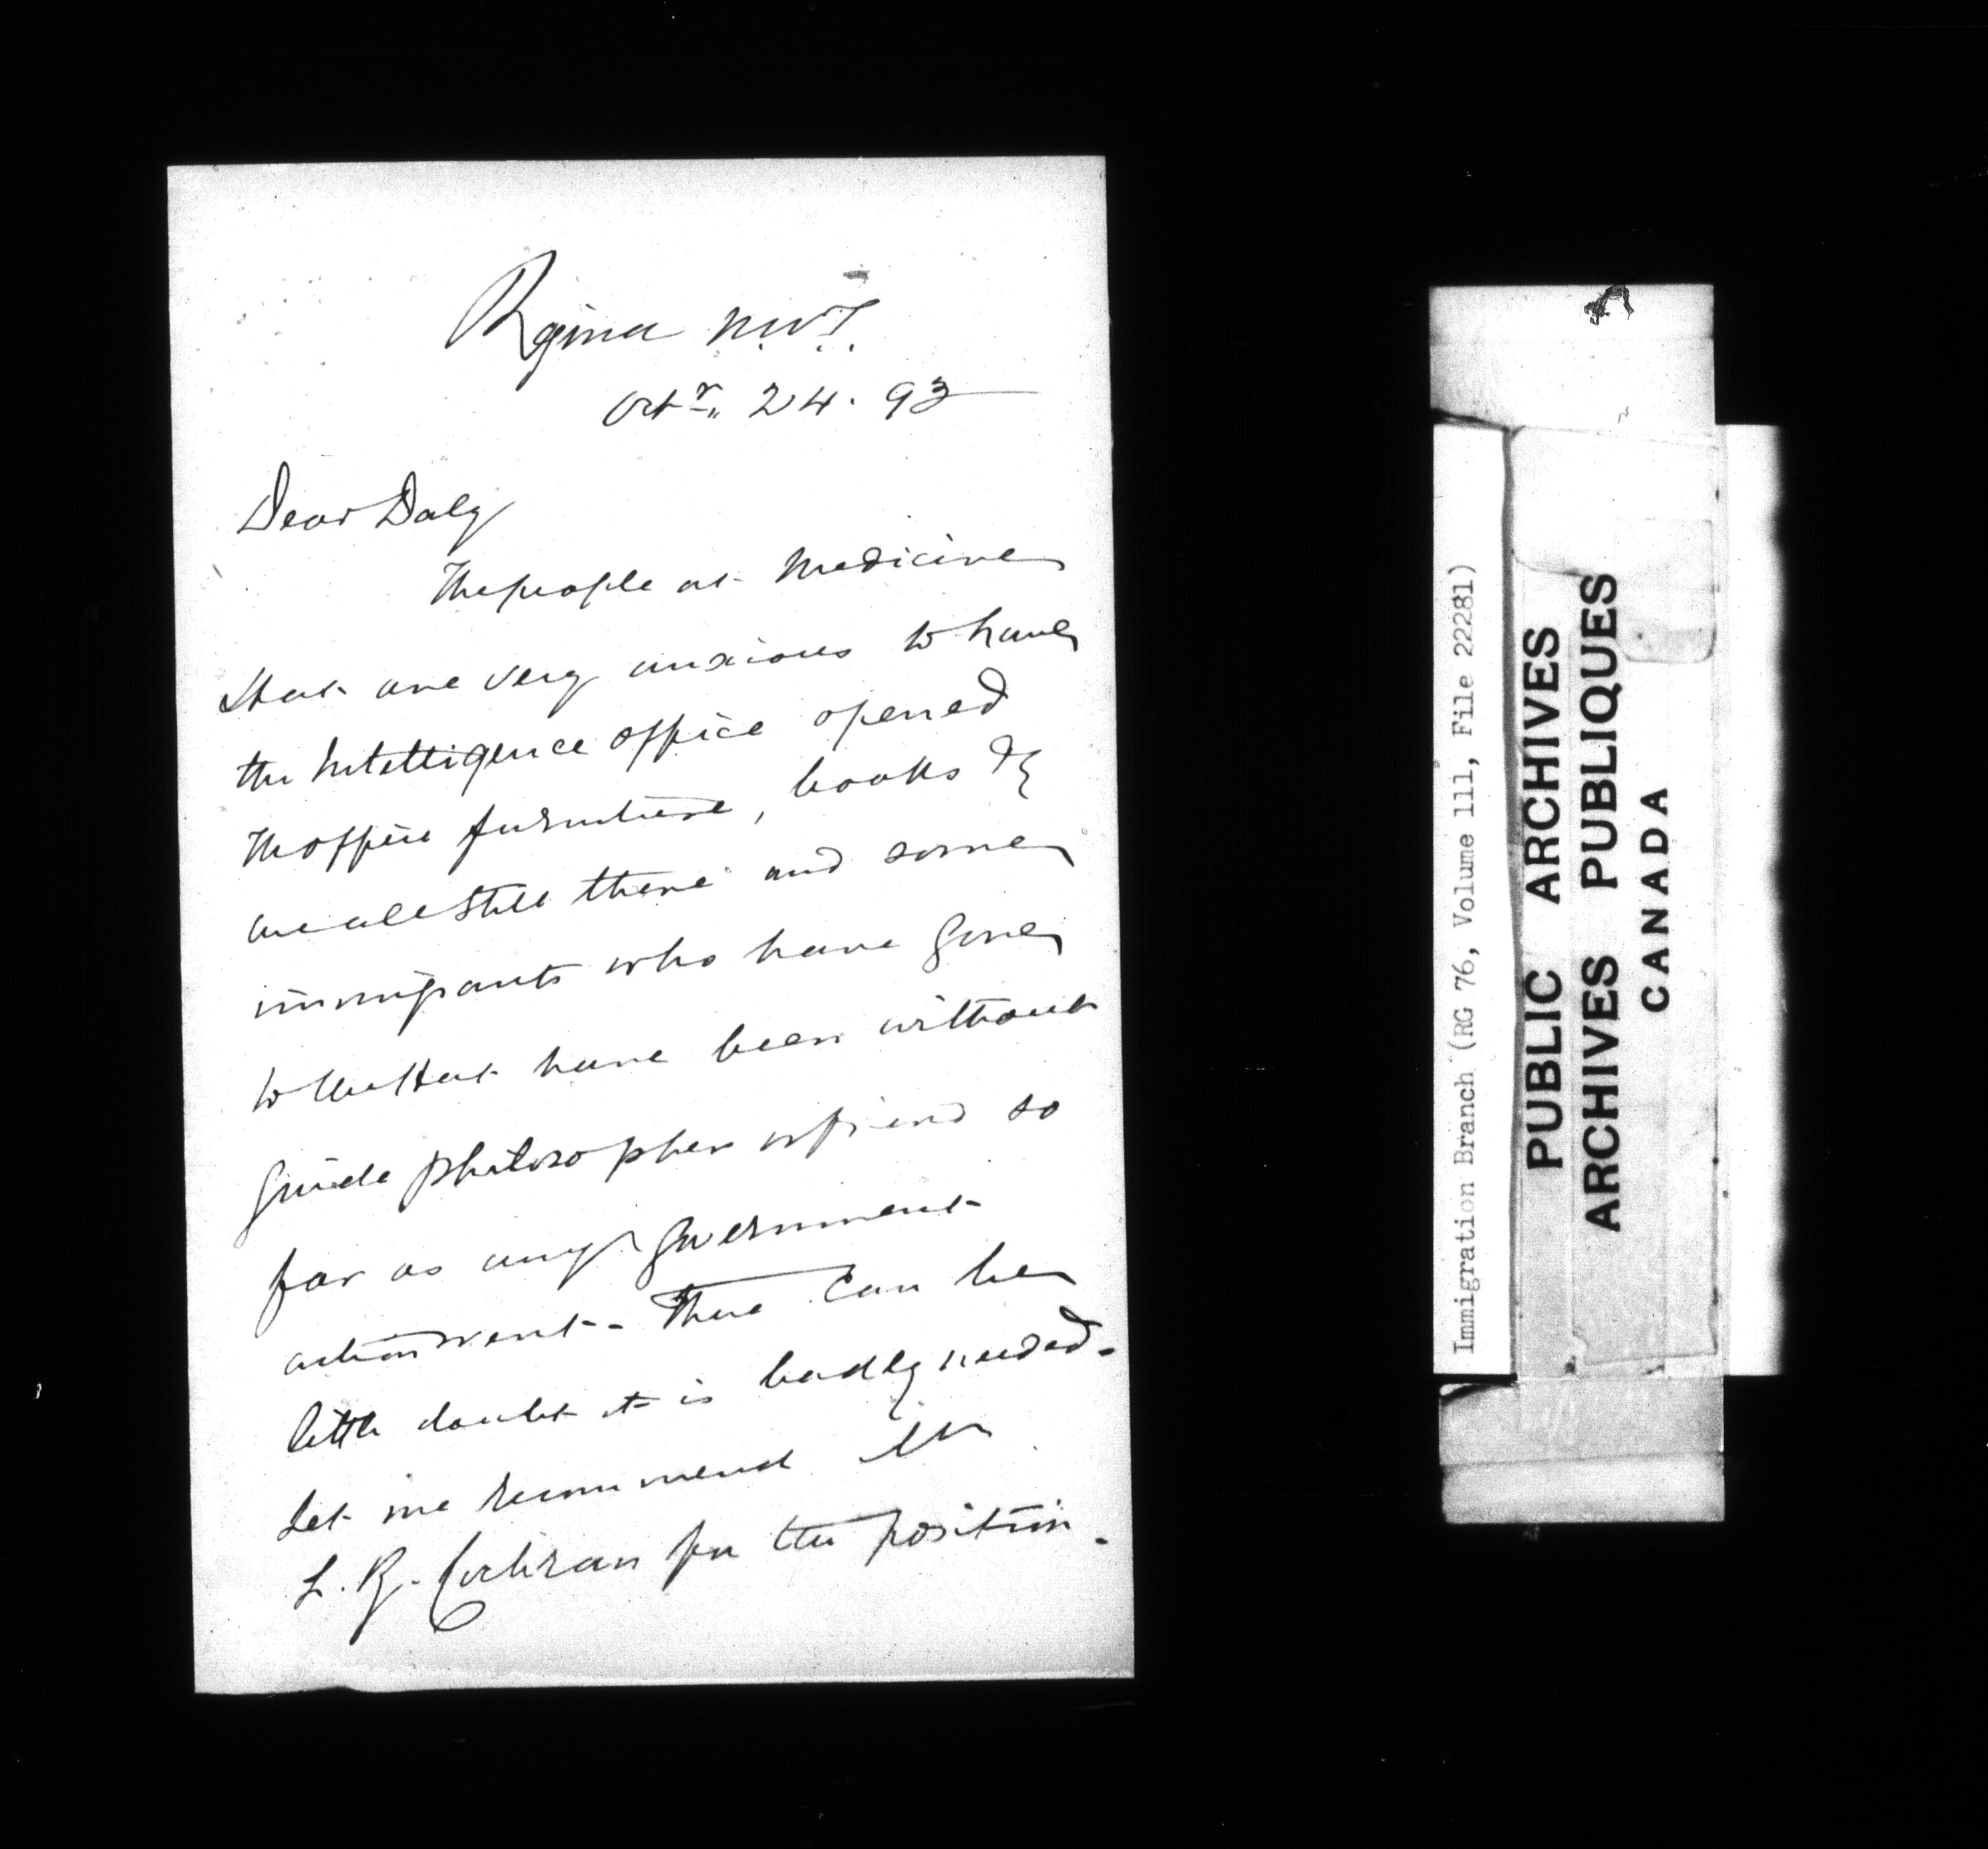 Regina N.W.T.
Octr. 24. 93
Dear Daly
The people at Medicine
Hat are very anxious to have
the Intelligence office opened
The office furniture, books &c
are all still there and some
immigrants who have gone
to the Hat have been without
guide philosopher or friend so
far as any Government
action went. There can be
little doubt it is badly needed.
Let me recommend Mr
L. B. Cochran for the position.
Immigration Branch (RG 76, Volume 111, File 22281)
PUBLIC ARCHIVES
ARCHIVES PUBLIQUES
CANADA